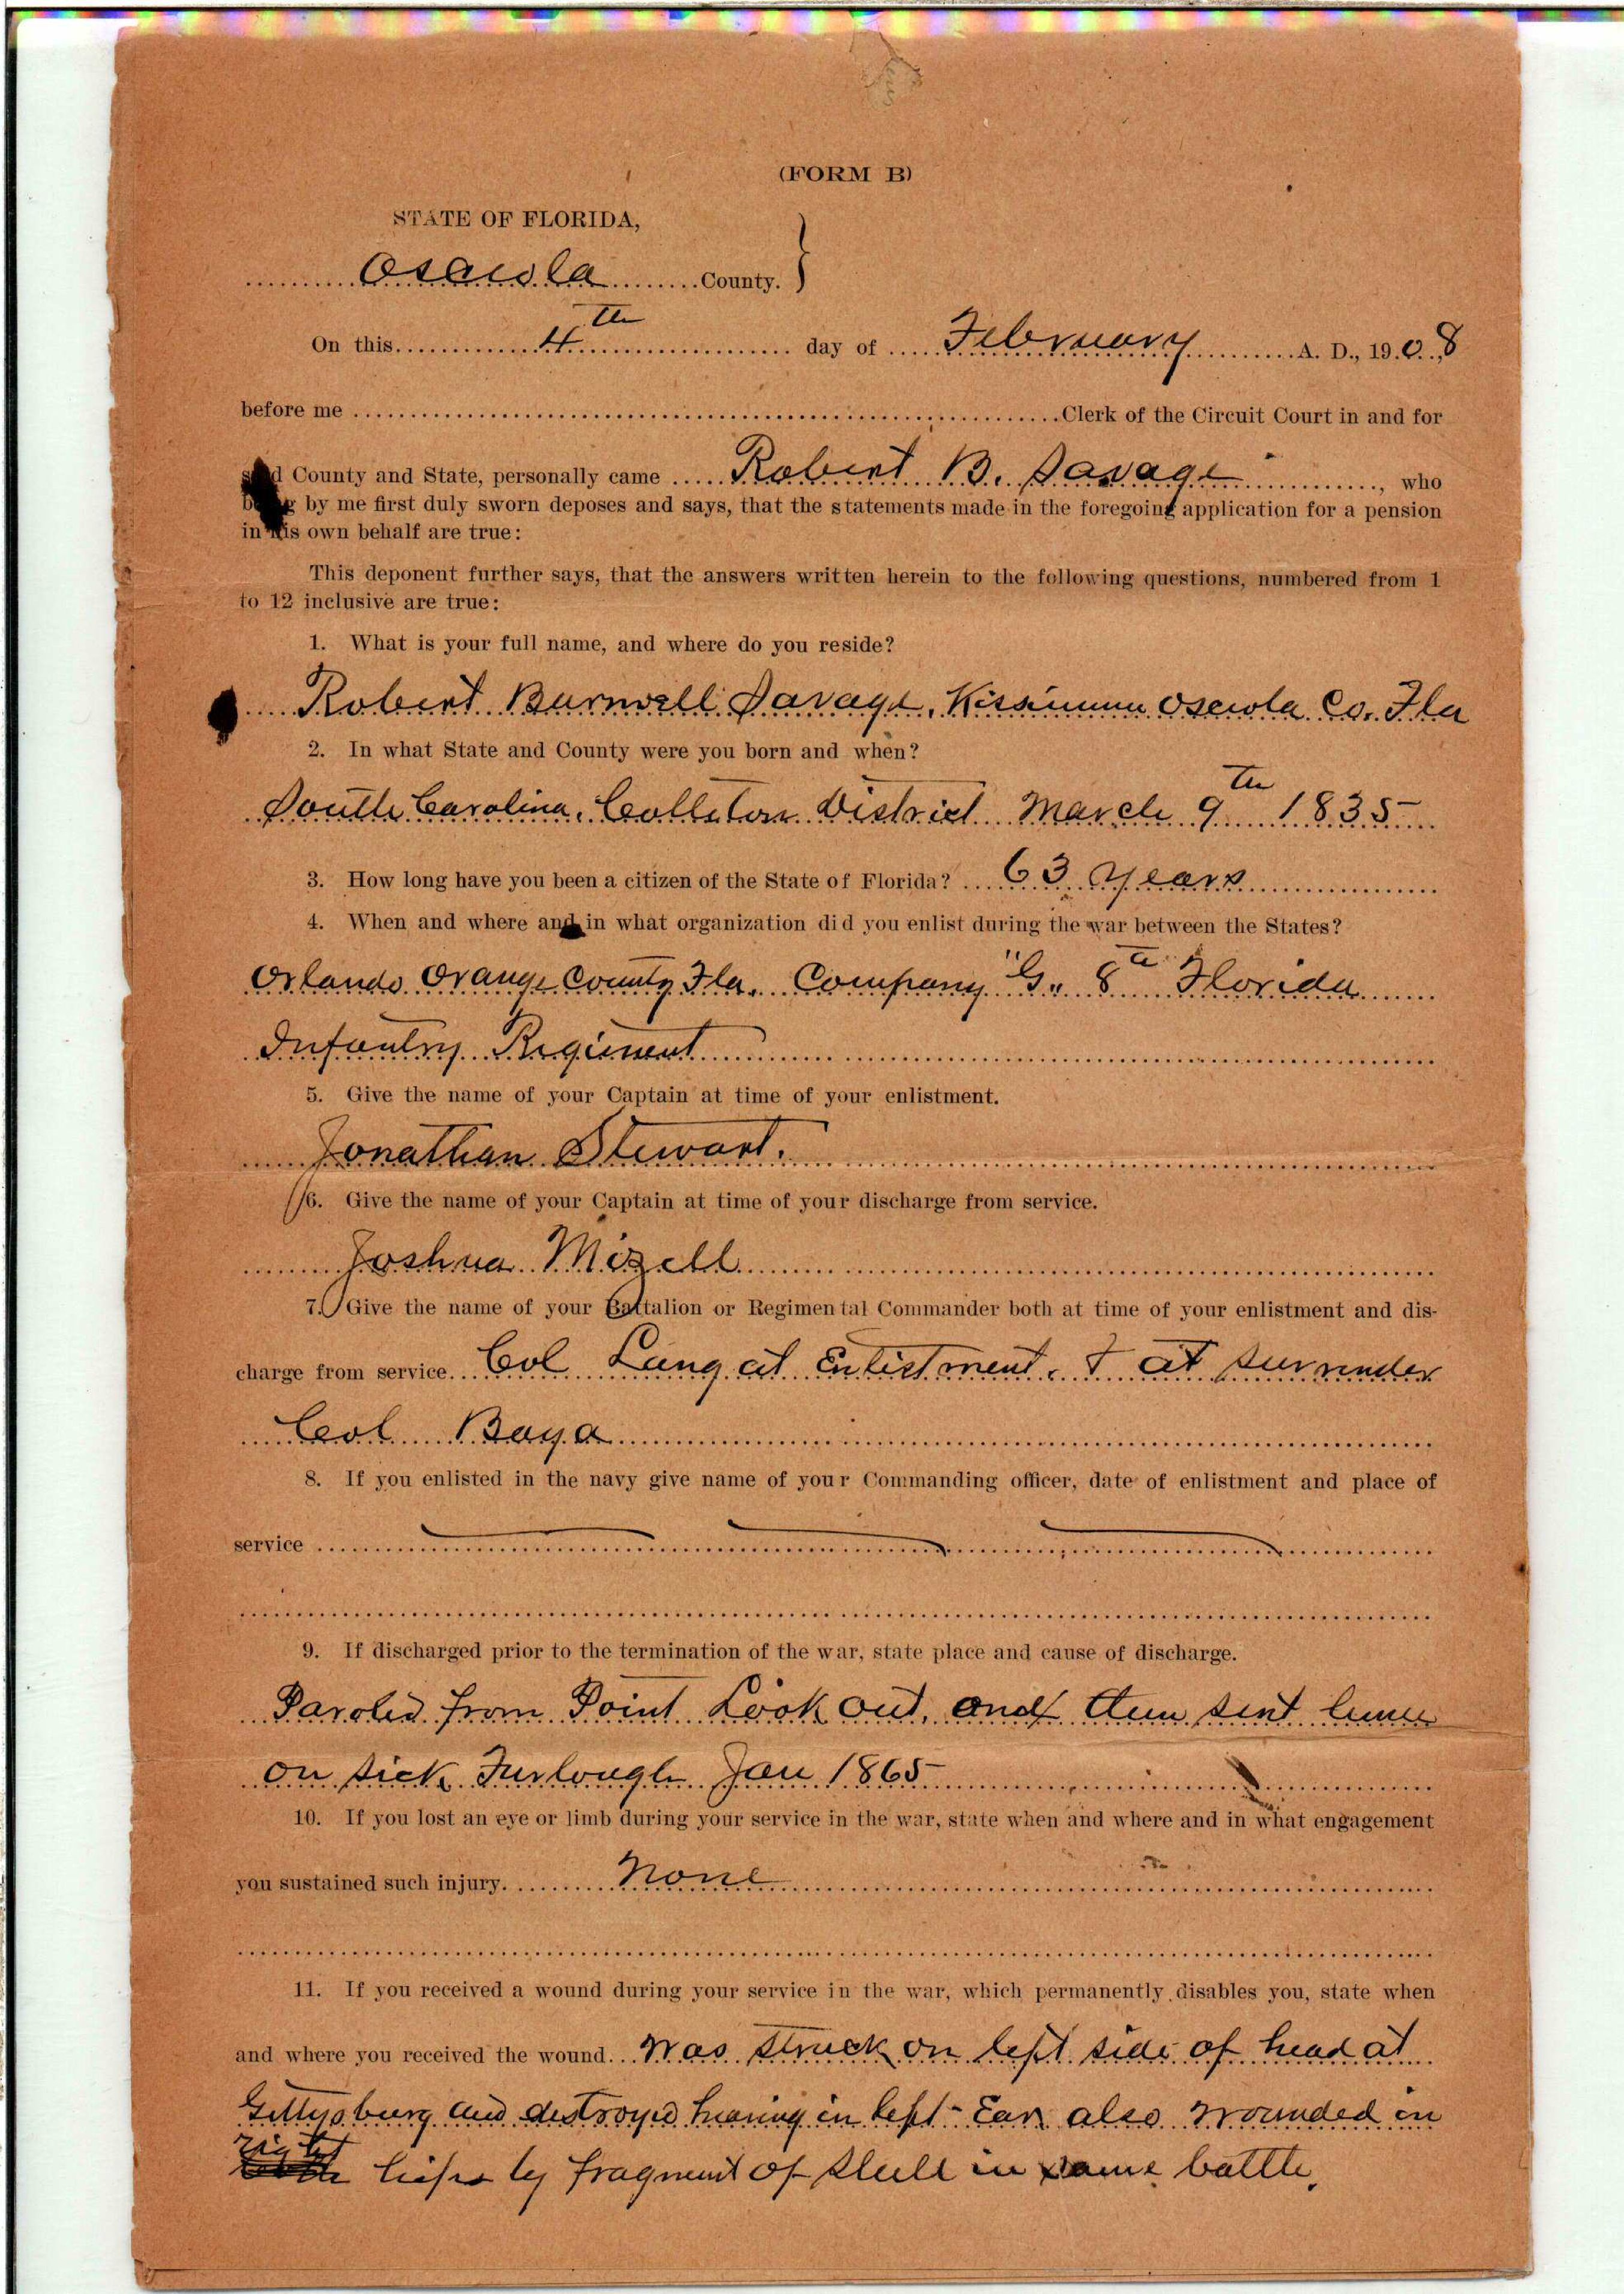 (FORM B)
STATE OF FLORIDA,
Osceola County.
On this 4th day of February A. D., 1908
before me Clerk of the Circuit Court in and for
said County and State, personally came Robert B. Savage, who
being by me first duly sworn deposes and says, that the statements made in the foregoing application for a pension
in his own behalf are true:
This deponent further says, that the answers written herein to the following questions, numbered from 1
to 12 inclusive are true:
1. What is your full name, and where do you reside?
Robert Burnwell Savage, Kissimmee Osceola Co. Fla
2. In what State and County were you born and when?
South Carolina, Colleton District March 9th 1835
3. How long have you been a citizen of the State of Florida? 63 years
4. When and where and in what organization did you enlist during the war between the States?
Orlando Orange County Fla. Company "G" 8th Florida
Infantry Regiment
5. Give the name of your Captain at time of your enlistment.
Jonathan Stewart.
6. Give the name of your Captain at time of your discharge from service.
Joshua Mizell
7. Give the name of your Battalion or Regimental Commander both at time of your enlistment and dis-
charge from service. Col Lang at Enlistment. & at surrender
Col Baya
8. If you enlisted in the navy give name of your Commanding officer, date of enlistment and place of
service
9. If discharged prior to the termination of the war, state place and cause of discharge.
Paroled from Point Look out, and then sent home
on sick Furlough Jan 1865
10. If you lost an eye or limb during your service in the war, state when and where and in what engagement
you sustained such injury. None
11. If you received a wound during your service in the war, which permanently disables you, state when
and where you received the wound. Was struck on left side of head at
Gettysburg and destroyed hearing in left Ear also wounded in
right hips by fragment of shell in same battle.